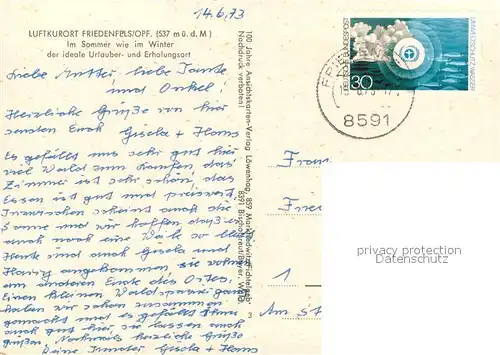 14.6.73
LUFTKURORT FRIEDENFELS/OPF. (537 m ü. d. M.)
Im Sommer wie im Winter
der ideale Urlauber- und Erholungsort
Liebe Mutter, liebe Tante
und Onkel!
Herzliche Grüße von hier
senden Euch Gisela + Hans
Es gefällt uns sehr gut hier
viel Wald zum Laufen, das
Zimmer ist sehr schön, das
Essen ist gut und preiswert.
Inzwischen scheint auch die
Sonne und wir hoffen daß es
auch noch eine Weile so bleibt
Heute sind auch Gisela und
angekommen, sie wohnen
am anderen Ende des Ortes.
Einen kleinen Waldspaziergang
haben wir schon zusammen
gemacht und es gefällt Ihnen
auch gut hier, sie lassen auch
grüßen. Nochmals herzliche Grüße
Deine Gisela + Hans
100 Jahre Ansichtskarten-Verlag Löwenhag, 859 Marktredwitz/Fichtelgeb.
Nachdruck verboten!
8391 Bischofsreut/Bayer. Wald
3
DEUTSCHE BUNDESPOST
30
UMWELTSCHUTZ: WASSER
8591
Fran
Frie
1
Am St
privacy protection
Datenschutz